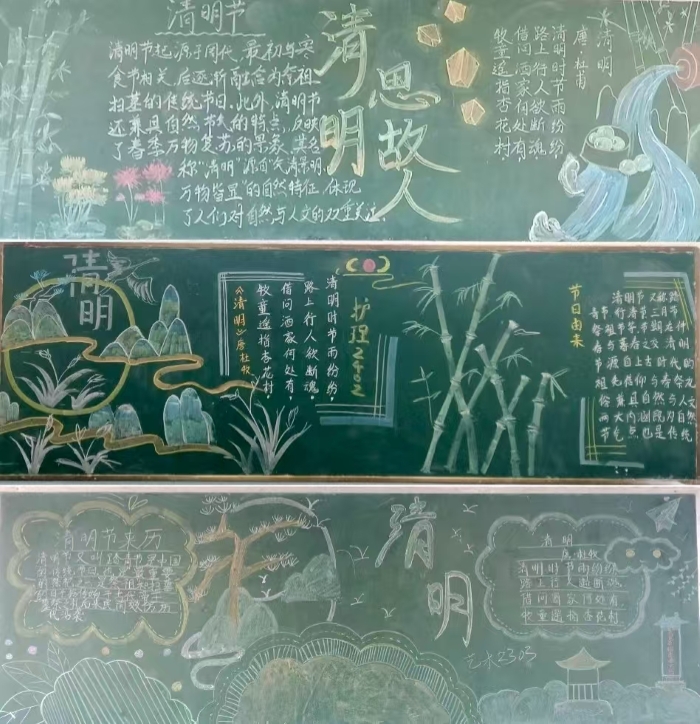 清明节
清明节起源于周代,最初与寒
食节相关,后逐渐融合为祭祖
扫墓的传统节日。此外,清明节
还兼具自然节气的特点,反映
了春季万物复苏的景象,其名
称"清明"源自"天清景明
万物皆显"的自然特征,体现
了人们对自然与人文的双重关注
清明
思故人
清明
唐·杜甫
清明时节雨纷纷
路上行人欲断魂
借问酒家何处有
牧童遥指杏花村
清明
清明时节雨纷纷,
路上行人欲断魂。
借问酒家何处有,
牧童遥指杏花村。
《清明》唐 杜牧
护理2402
节日由来
清明节又称踏
青节 行清节 三月节
祭祖节等 节期在仲
春与暮春之交 清明
节源自上古时代的
祖先信仰与春祭
俗 兼具自然与人文
两大内涵 既为自然
节气点也是传统
清明节来历
清明
清明
唐 杜牧
清明时节雨纷纷
路上行人欲断魂
借问酒家何处有
牧童遥指杏花村
艺术2303